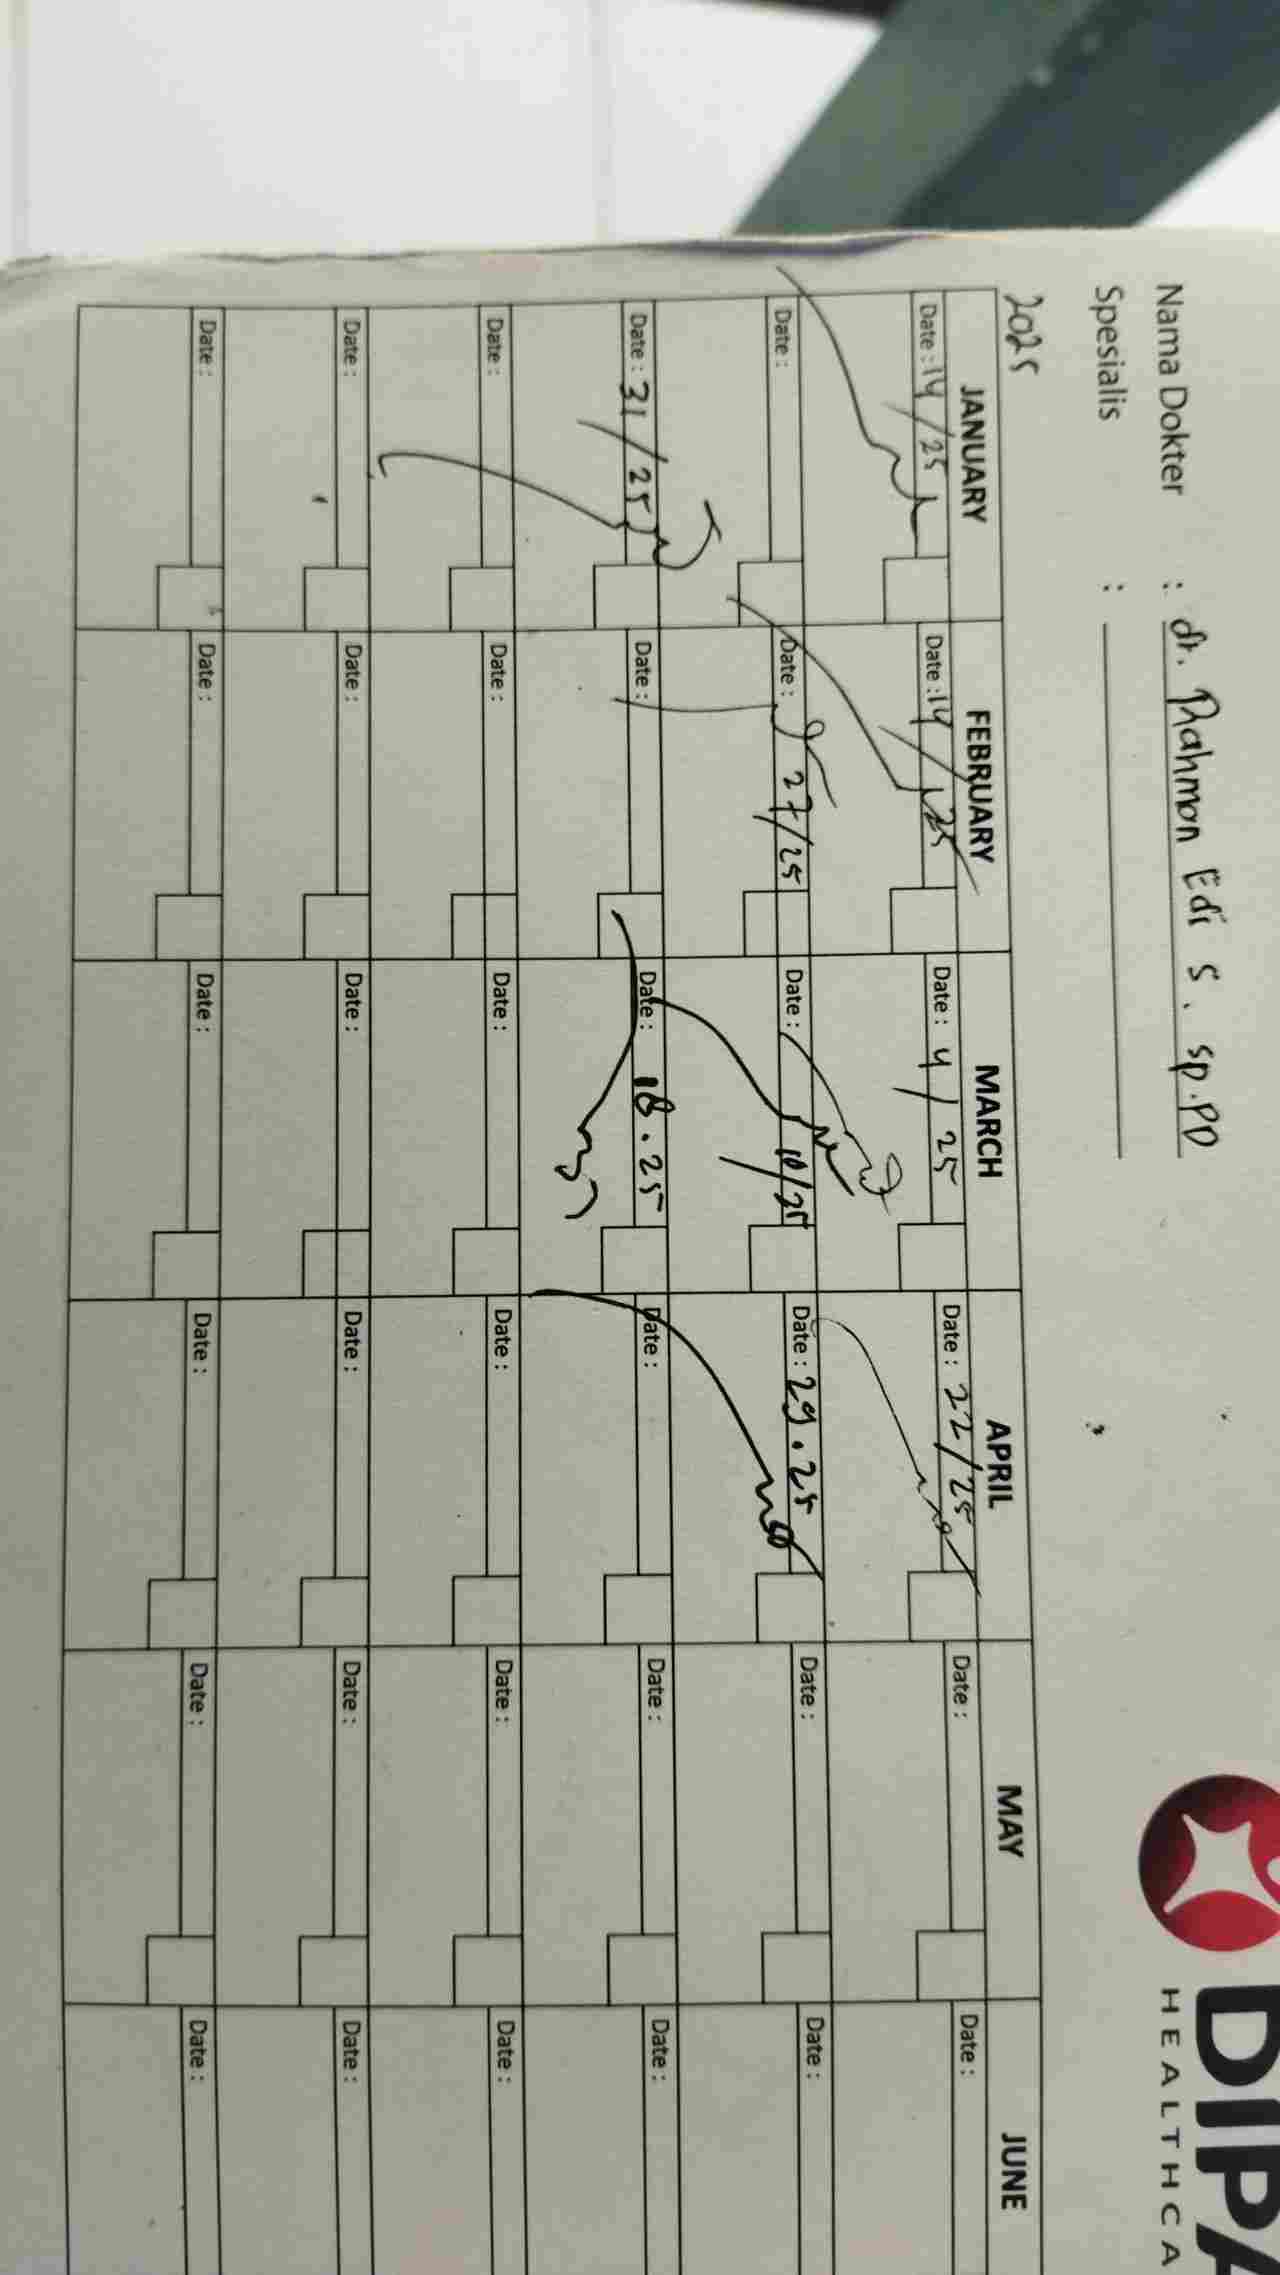 DIPA
HEALTHCA
Nama Dokter : dr. Rahmon Edi S. Sp.PD
Spesialis :
2025
JANUARY FEBRUARY MARCH APRIL MAY JUNE
Date : 14/25 Date : 14/25 Date : 4/25 Date : 22/25 Date : Date :
Date : Date : 27/25 Date : 10/25 Date : 29.25 Date : Date :
Date : 31/25 Date : Date : 18.25 Date : Date : Date :
Date : Date : Date : Date : Date : Date :
Date : Date : Date : Date : Date : Date :
Date : Date : Date : Date : Date : Date :